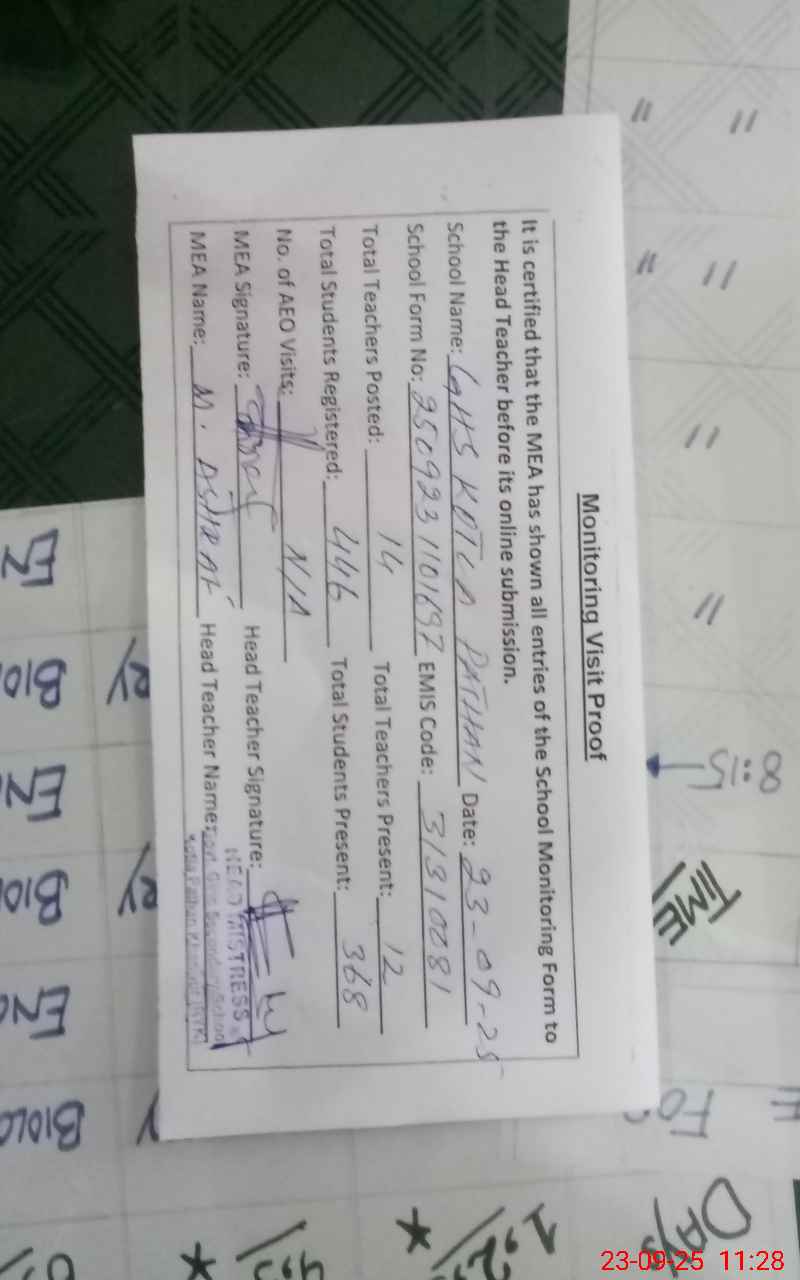 Monitoring Visit Proof
It is certified that the MEA has shown all entries of the School Monitoring Form to
the Head Teacher before its online submission.
School Name: GGHS KOTLA PATHAN Date: 23-09-25
School Form No: 2509231101697 EMIS Code: 31310081
Total Teachers Posted: 14 Total Teachers Present: 12
Total Students Registered: 446 Total Students Present: 368
No. of AEO Visits: N/A
MEA Signature: Head Teacher Signature:
HEAD MISTRESS
MEA Name: M. ASHRAF Head Teacher Name:
Govt. Girls Secondary School
Kotla Pathan
8:15
TIME
DAYS
BIO
BIO
BIOLO
23-09-25 11:28